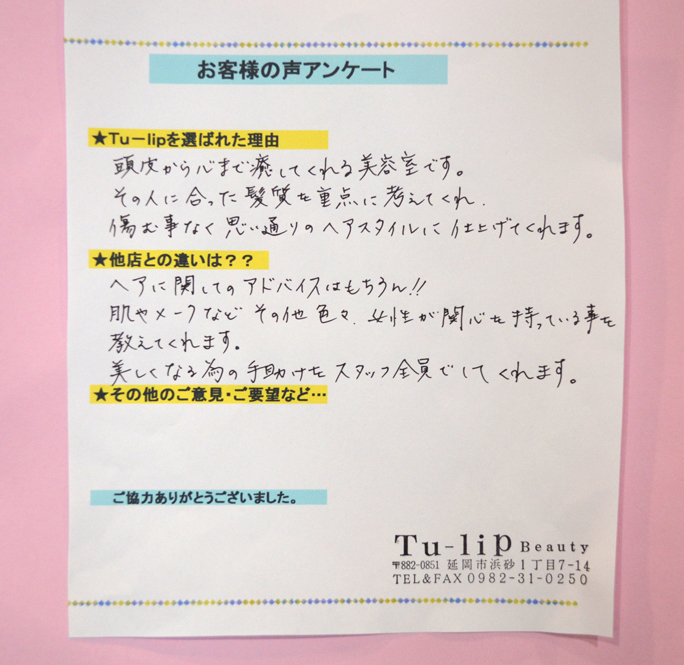 お客様の声アンケート
★Tu－lipを選ばれた理由
頭皮から心まで癒してくれる美容室です。
その人に合った髪質を重点に考えてくれ、
傷む事なく思い通りのヘアスタイルに仕上げてくれます。
★他店との違いは？？
ヘアに関してのアドバイスはもちろん!!
肌やメークなど その他色々、女性が関心を持っている事を
教えてくれます。
美しくなる為の手助けをスタッフ全員でしてくれます。
★その他のご意見・ご要望など…
ご協力ありがとうございました。
Tu-lip Beauty
〒882-0851 延岡市浜砂1丁目7-14
TEL&FAX 0982-31-0250